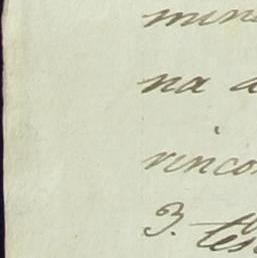 mine
na a
rinco
3. tes